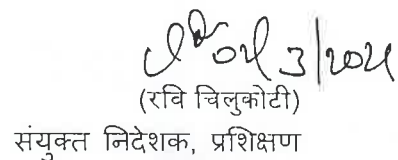 (रवि चिलुकोटी)
संयुक्त निदेशक, प्रशिक्षण